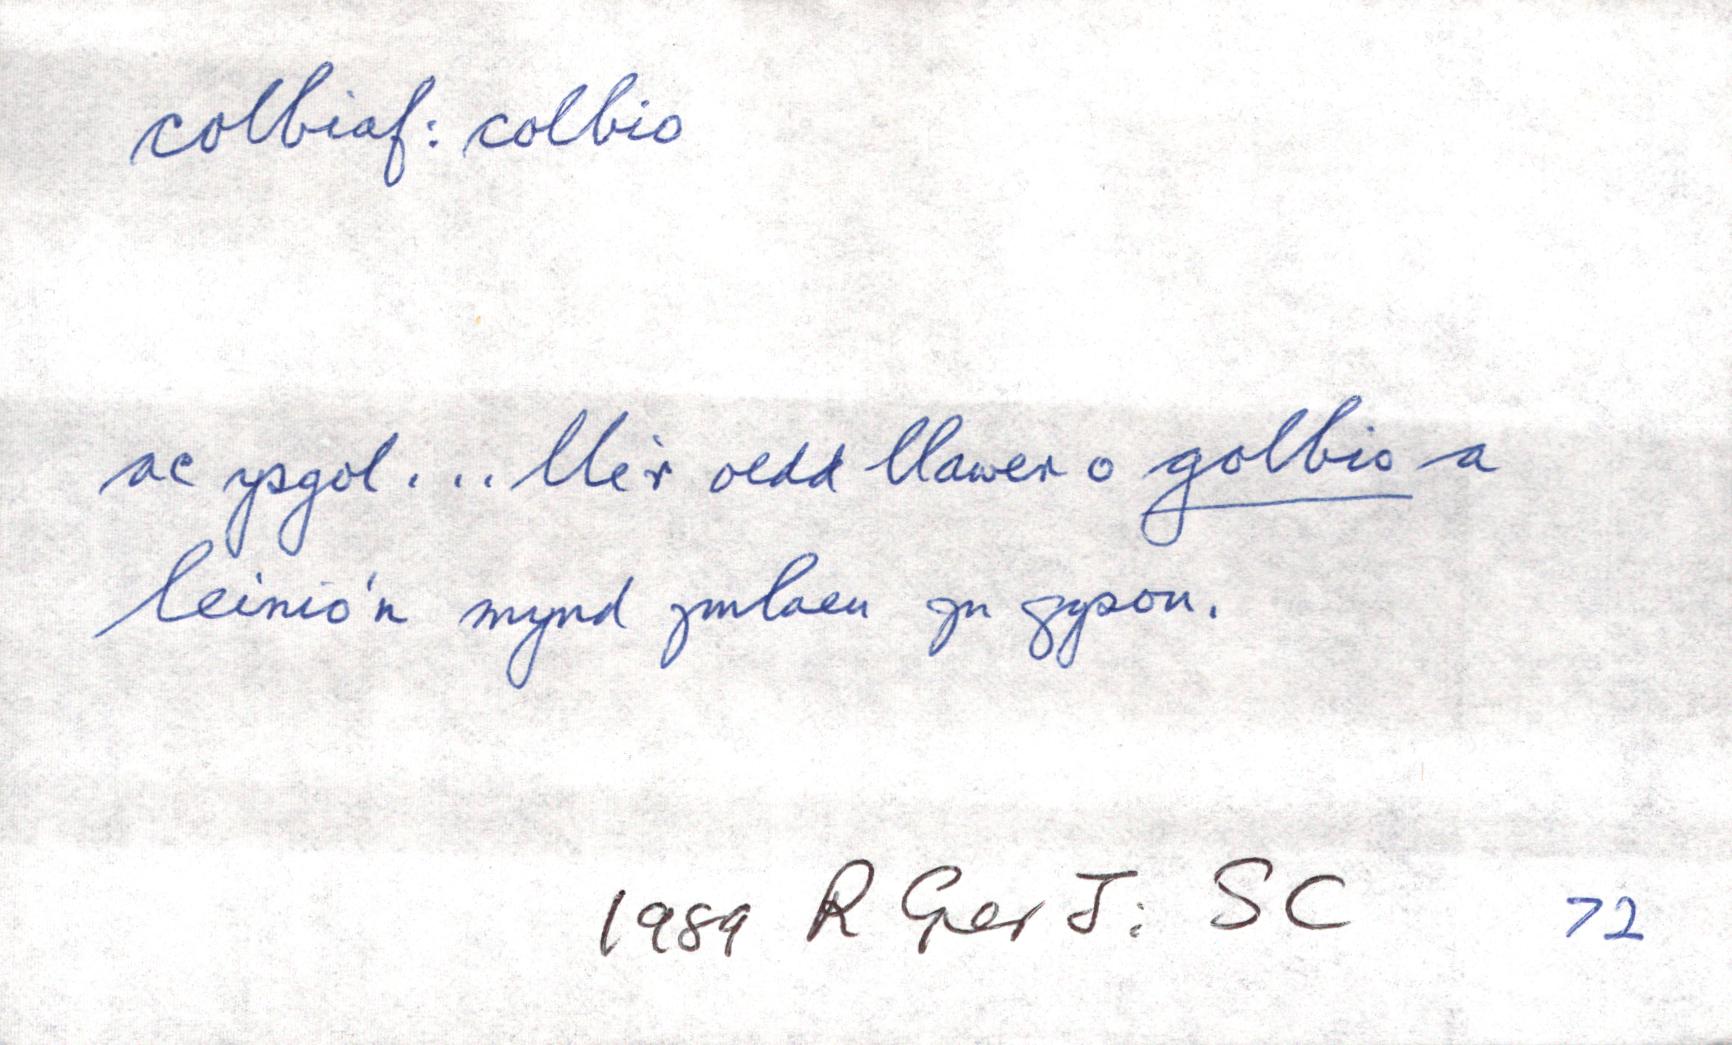 colbiaf: colbio
ac ysgol... lle'r oedd llawer o golbio a
leinio'n mynd ymlaen yn gyson.
1989 R Ger J: SC 72